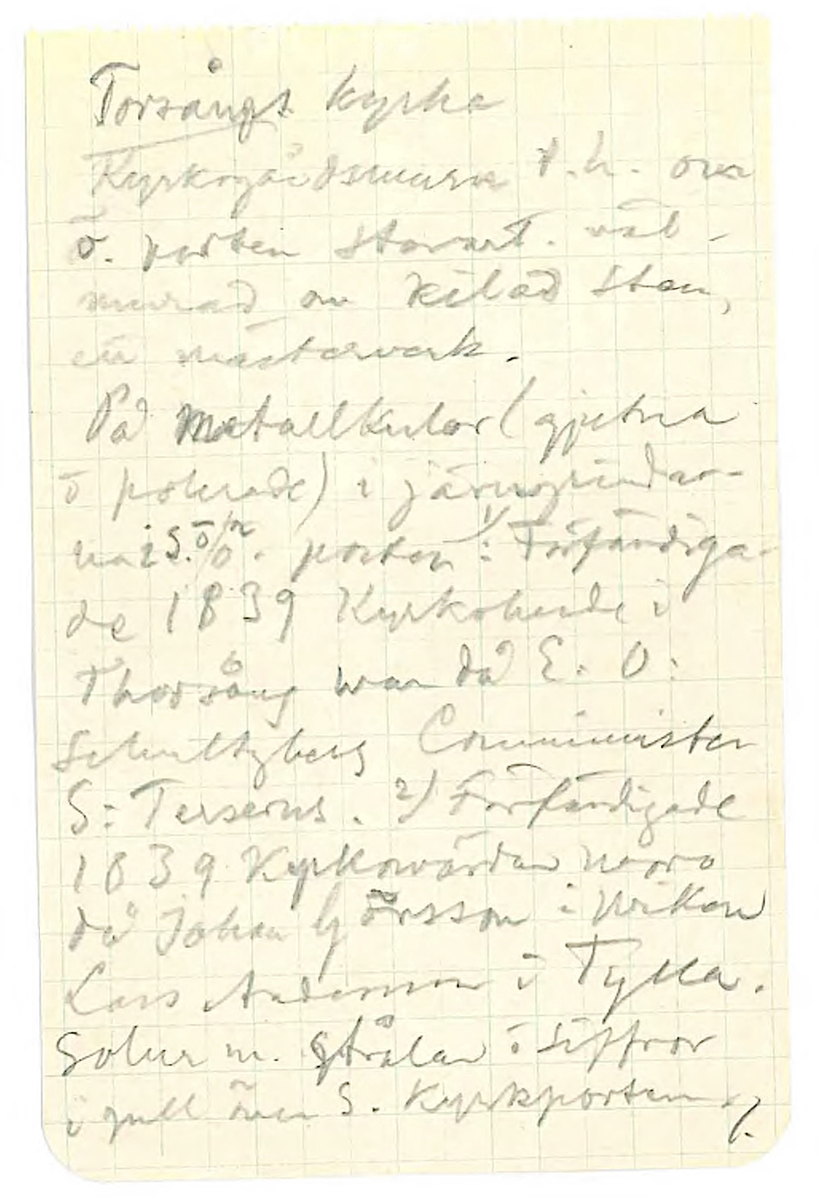 Torsångs kyrka
Kyrkogårdsmuren t.h. om
ö. porten ståtar. väl-
murad av kilad sten,
ett mästerverk.
På metallkulor (gjutna
o polerade) i järngrindar-
na i S. o/ö. porten: 1/ Förfärdiga-
de 1839 Kyrkoherde i
Thorsång war då E: O:
Schultzberg Comminister
S: Terserus. 2) Förfärdigade
1839 Kyrkowärdar woro
då Johan Görsson i Wiken
Lars Andersson i Tylla.
Solur m. strålar o siffror
i gull över S. Kyrkporten.